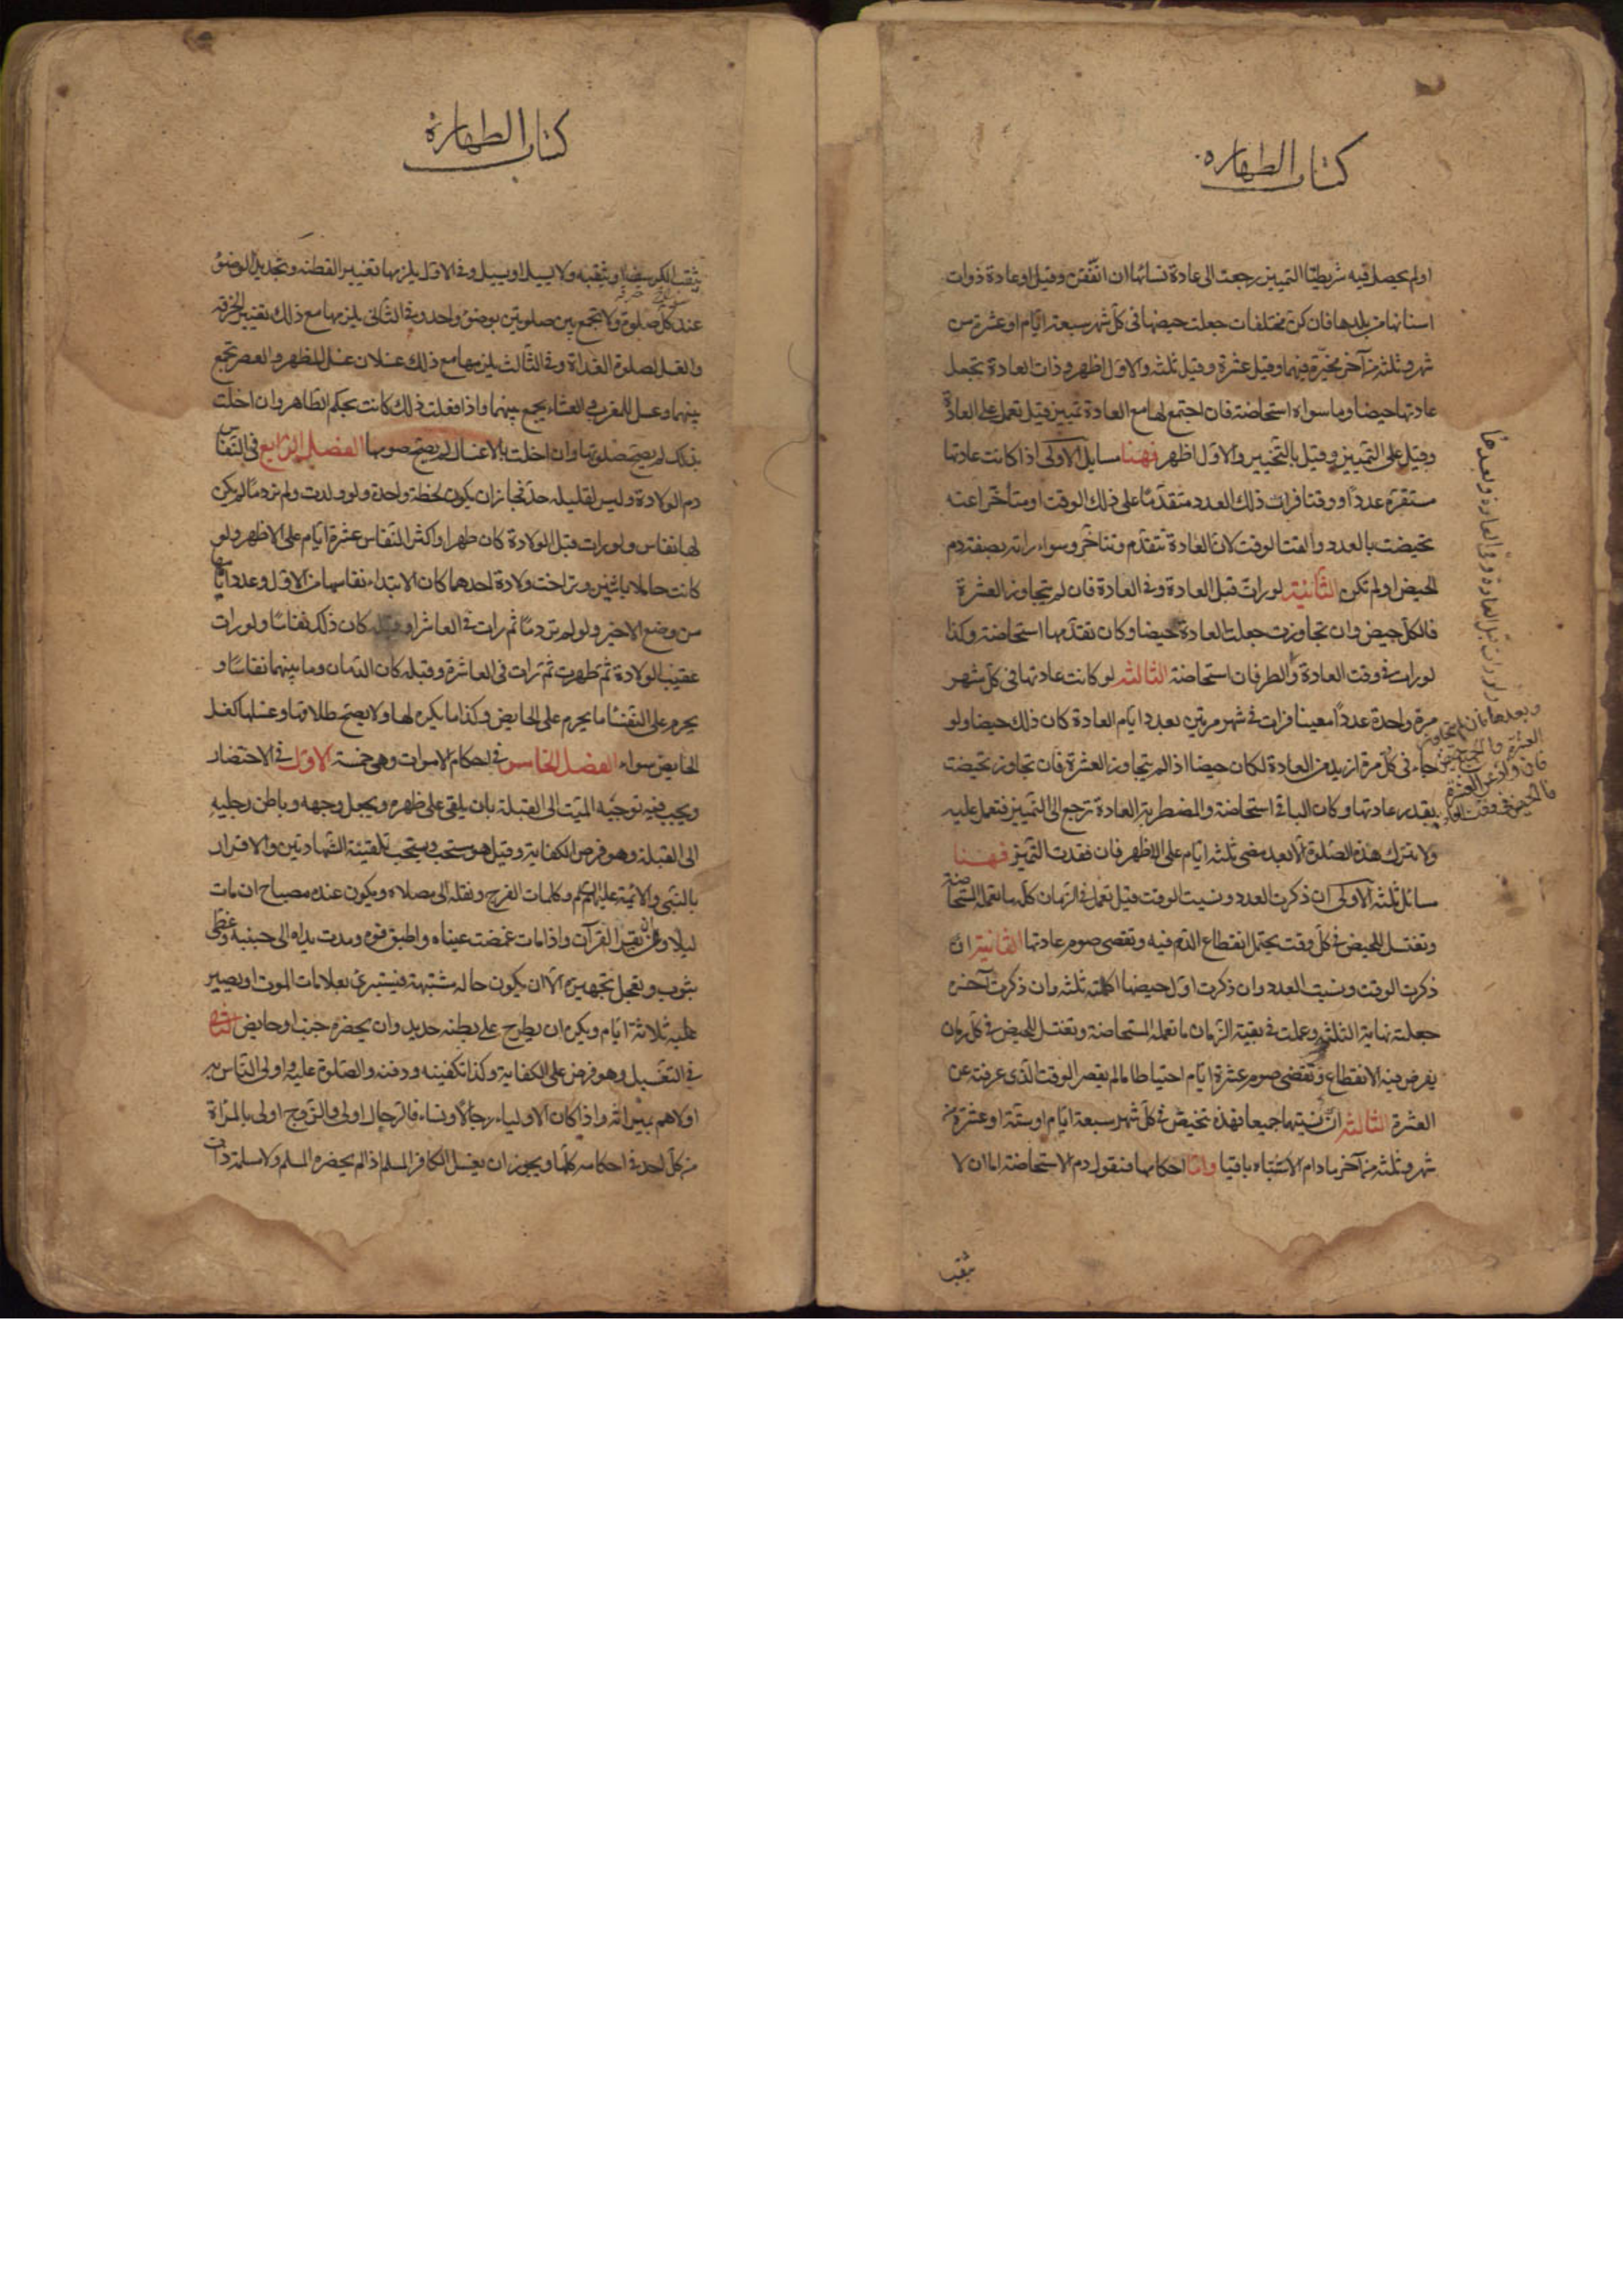 كتاب الطهاره
او لم يحصل فيه شريطتا التمييز رجعت الى عادة نسائها ان اتفقن وقيل او عادة ذوات
اسنانها من بلدها فان كن مختلفات جعلت حيضها فى كل شهر سبعة ايام او عشرة من
شهر وثلثة من آخر مخيرة فيهما وقيل عشرة وقيل ثلثة والاول اظهر وذات العادة تجعل
عادتها حيضا وما سواه استحاضة فان اجتمع لها مع العادة تمييز قيل تعمل على العادة
وقيل على التمييز وقيل بالتخيير والاول اظهر فهنا مسايل الاولى اذا كانت عادتها
مستقرة عددا ووقتا فرات ذلك العدد متقدما على ذلك الوقت او متأخرا عنه
تحيضت بالعدد والقت الوقت لان العادة تتقدم وتتاخر وسواء راته بصفة دم
الحيض او لم تكن الثانية لو رات قبل العادة وفى العادة فان لم يتجاوز العشرة
فالكل حيض وان تجاوزت جعلت العادة حيضا وكان تقدمها استحاضة وكذا
لو رات فى وقت العادة والطرفان استحاضة الثالثه لو كانت عادتها فى كل شهر
مرة واحدة عددا معينا فرات فى شهر مرتين بعدد ايام العادة كان ذلك حيضا ولو
جاء فى كل مرة ازيد من العادة لكان حيضا اذا لم يتجاوز العشرة فان تجاوز تحيضت
بقدر عادتها وكان الباقى استحاضة والمضطربة العادة ترجع الى التمييز فتعمل عليه
ولا تترك هذه الصلوة الا بعد مضى ثلثة ايام على الاظهر فان فقدت التميز فهنا
مسائل ثلثة الاولى ان ذكرت العدد ونسيت الوقت قيل تعمل فى الزمان كله ما تعمله المستحاضة
وتغتسل للحيض فى كل وقت يحتمل انقطاع الدم فيه وتقضى صوم عادتها الثانية ان
ذكرت الوقت ونسيت العدد وان ذكرت اول حيضها اكملته ثلثة وان ذكرت آخره
جعلته نهاية الثلثة وعملت فى بقية الزمان ما تعمله المستحاضة وتغتسل للحيض فى كل زمان
يفرض فيه الانقطاع وتقضى صوم عشرة ايام احتياطا ما لم يقصر الوقت الذى عرفته عن
العشرة الثالثه ان نسيتهما جميعا فهذه تحيض فى كل شهر سبعة ايام او ستة او عشرة من
شهر وثلثة من آخر ما دام الاشتباه باقيا واما احكامها فنقول دم الاستحاضة اما ان لا
ولو رات قبل العادة وفى العادة وبعدها
وبعدها فان لم يتجاوز
العشرة فالجميع حيض
فان زاد عن العشرة
فالحيض فى وقت العادة
يثقب
كتاب الطهارة
يثقب الكرسف او يثقبه ولا يسيل او يسيل وفى الاول يلزمها تغيير القطنة وتجديد الوضوء
عند كل صلوة ولا تجمع بين صلوتين بوضوء واحد وفى الثانى يلزمها مع ذلك تغيير الخرقة
والغسل لصلوة الغداة وفى الثالث يلزمها مع ذلك غسلان غسل للظهر والعصر تجمع
بينهما وغسل للمغرب والعشاء يجمع بينهما واذا فعلت ذلك كانت بحكم الطاهر وان اخلت
بذلك لم يصح صلوتها وان اخلت بالاغسال لم يصح صومها الفصل الرابع فى النفاس
دم الولادة وليس لقليله حد فجاز ان يكون لحظة واحدة ولو ولدت ولم تر دما لم يكن
لها نفاس ولو رات قبل الولادة كان طهرا واكثر النفاس عشرة ايام على الاظهر ولو
كانت حاملا باثنين وتراخت ولادة احدهما كان الابتداء نفاسها من الاول وعدد ايامها
من وضع الاخير ولو لم تر دما ثم رات فى العاشر او قبله كان ذلك نفاسا ولو رات
عقيب الولادة ثم طهرت ثم رات فى العاشرة وقبله كان الدمان وما بينهما نفاسا و
يحرم على النفساء ما يحرم على الحايض وكذا ما يكره لها ولا يصح طلاقها وغسلها كغسل
الحايض سواء الفصل الخامس فى احكام الاموات وهى خمسة الاول فى الاحتضار
ويجب فيه توجيه الميت الى القبلة بان يلقى على ظهره ويجعل وجهه وباطن رجليه
الى القبلة وهو فرض الكفاية وقيل هو مستحب ويستحب تلقينه الشهادتين والاقرار
بالنبى والائمة عليهم السلم وكلمات الفرج ونقله الى مصلاه ويكون عنده مصباح ان مات
ليلا ومن يقرأ القرآن واذا مات غمضت عيناه واطبق فوه ومدت يداه الى جنبيه وغطى
بثوب وتعجل تجهيزه الا ان يكون حاله مشتبهة فيستبرئ بعلامات الموت او يصير
عليه ثلاثة ايام ويكره ان يطرح على بطنه حديد وان يحضره جنب او حايض الثانى
فى التغسيل وهو فرض على الكفاية وكذا تكفينه ودفنه والصلوة عليه واولى الناس به
اولاهم بميراثه واذا كان الاولياء رجالا ونساء فالرجال اولى والزوج اولى بالمراة
من كل احد فى احكامه كلها ويجوز ان يغسل الكافر المسلم اذا لم يحضره المسلم ولا مسلمة ذات